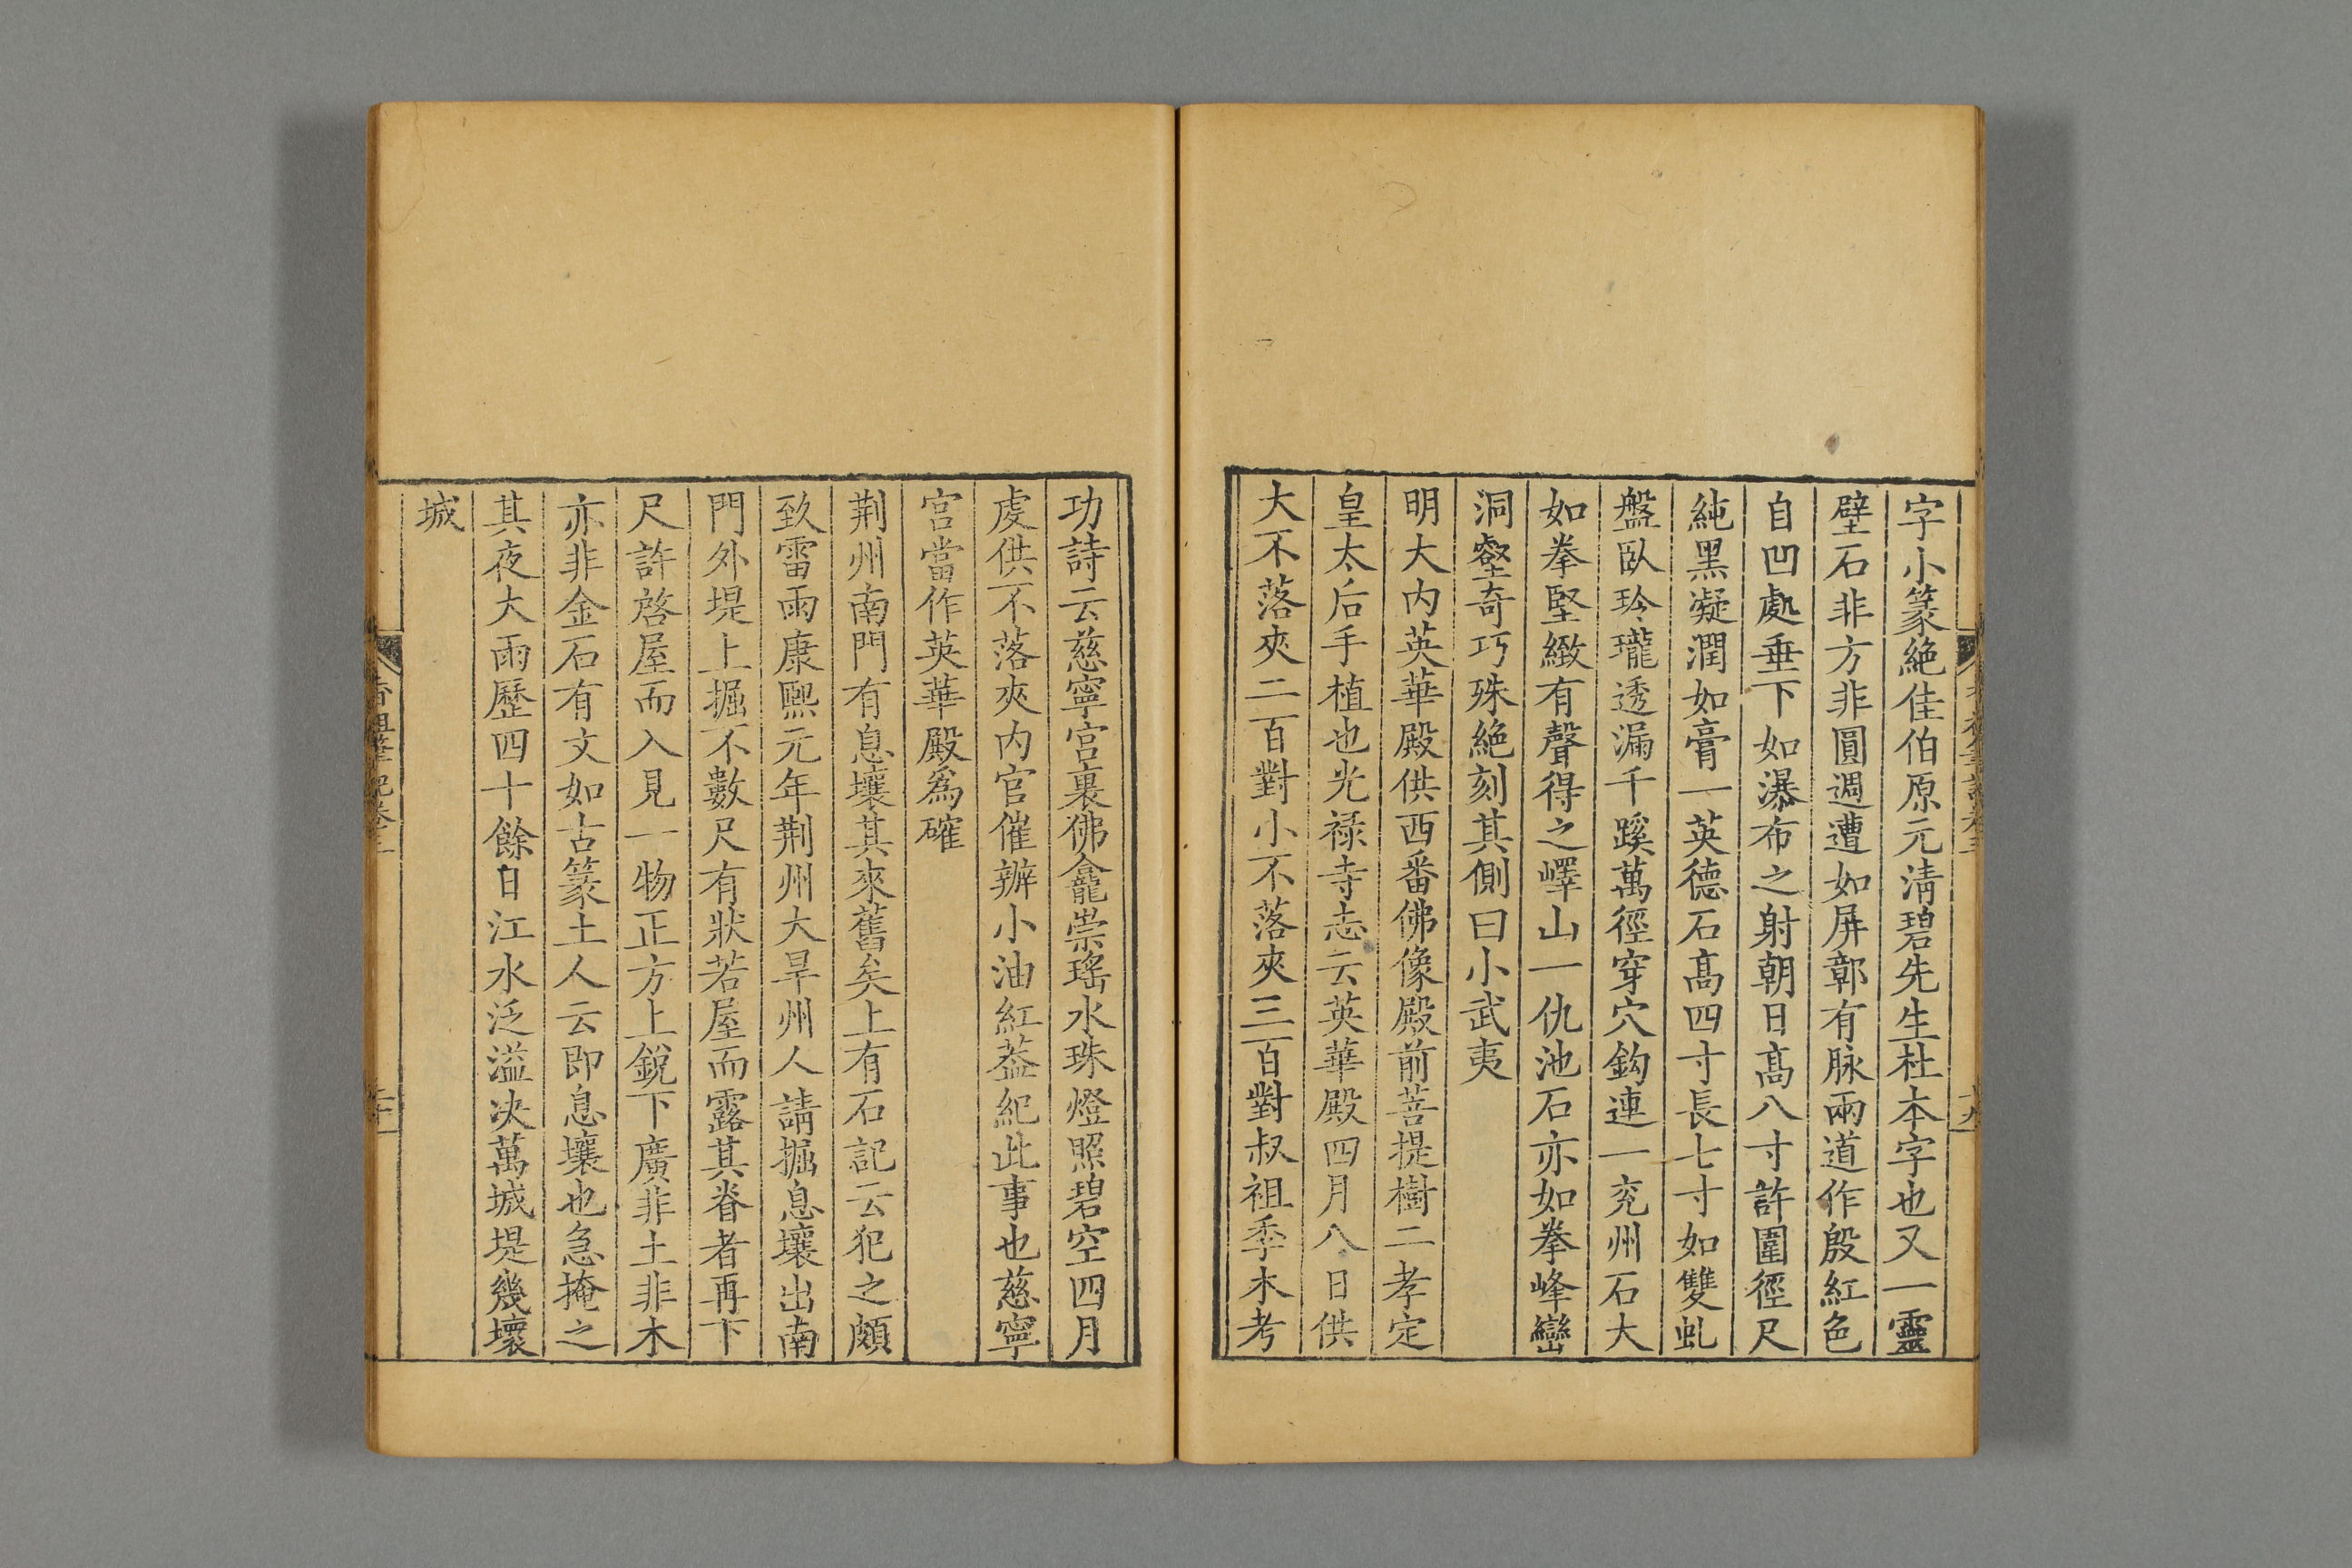 字小篆絶佳伯原元清碧先生杜本字也又一靈
壁石非方非圓週遭如屏鄣有脉兩道作殷紅色
自凹處垂下如瀑布之射朝日髙八寸許圍徑尺
純黑凝潤如膏一英德石髙四寸長七寸如雙虬
盤臥玲瓏透漏千蹊萬徑穿穴鈎連一兖州石大
如拳堅緻有聲得之嶧山一仇池石亦如拳峰巒
洞壑奇巧殊絶刻其側曰小武夷
明大内英華殿供西番佛像殿前菩提樹二孝定
皇太后手植也光禄寺志云英華殿四月八日供
大不落夾二百對小不落夾三百對叔祖季木考
功詩云慈寧宫裏佛龕崇瑤水珠燈照碧空四月
虔供不落夾内官催辦小油紅葢紀此事也慈寧
宫當作英華殿爲確
荆州南門有息壤其來舊矣上有石記云犯之頗
致雷雨康熙元年荆州大旱州人請掘息壤出南
門外堤上掘不數尺有狀若屋而露其脊者再下
尺許啓屋而入見一物正方上銳下廣非土非木
亦非金石有文如古篆土人云即息壤也急掩之
其夜大雨歷四十餘日江水泛溢决萬城堤幾壞
城
香祖筆記卷三